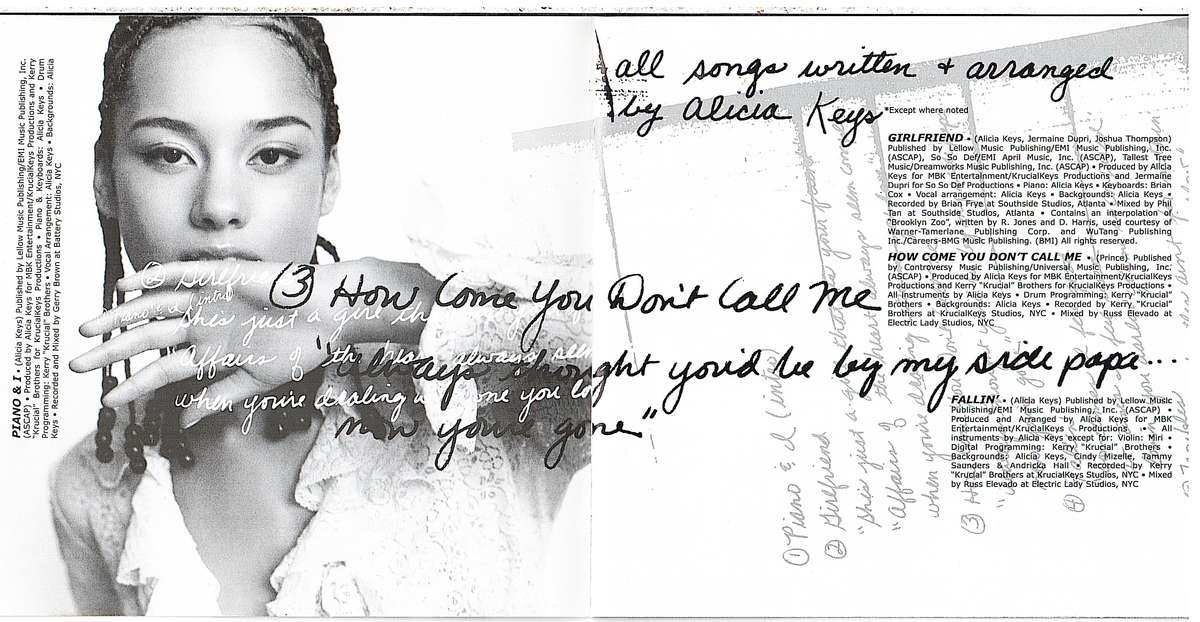 PIANO & I • (Alicia Keys) Published by Lellow Music Publishing/EMI Music Publishing, Inc.
(ASCAP) • Produced by Alicia Keys for MBK Entertainment/KrucialKeys Productions and Kerry
"Krucial" Brothers for KrucialKeys Productions • Piano & Keyboards: Alicia Keys • Drum
Programming: Kerry "Krucial" Brothers • Vocal Arrangement: Alicia Keys • Backgrounds: Alicia
Keys • Recorded and Mixed by Gerry Brown at Battery Studios, NYC
all songs written + arranged
by Alicia Keys
*Except where noted
GIRLFRIEND • (Alicia Keys, Jermaine Dupri, Joshua Thompson)
Published by Lellow Music Publishing/EMI Music Publishing, Inc.
(ASCAP), So So Def/EMI April Music, Inc. (ASCAP), Tallest Tree
Music/Dreamworks Music Publishing, Inc. (ASCAP) • Produced by Alicia
Keys for MBK Entertainment/KrucialKeys Productions and Jermaine
Dupri for So So Def Productions • Piano: Alicia Keys • Keyboards: Brian
Cox • Vocal arrangement: Alicia Keys • Backgrounds: Alicia Keys •
Recorded by Brian Frye at Southside Studios, Atlanta • Mixed by Phil
Tan at Southside Studios, Atlanta • Contains an interpolation of
"Brooklyn Zoo", written by R. Jones and D. Harris, used courtesy of
Warner-Tamerlane Publishing Corp. and WuTang Publishing
Inc./Careers-BMG Music Publishing. (BMI) All rights reserved.
HOW COME YOU DON'T CALL ME • (Prince) Published
by Controversy Music Publishing/Universal Music Publishing, Inc.
(ASCAP) • Produced by Alicia Keys for MBK Entertainment/KrucialKeys
Productions and Kerry "Krucial" Brothers for KrucialKeys Productions •
All Instruments by Alicia Keys • Drum Programming: Kerry "Krucial"
Brothers • Backgrounds: Alicia Keys • Recorded by Kerry "Krucial"
Brothers at KrucialKeys Studios, NYC • Mixed by Russ Elevado at
Electric Lady Studios, NYC
③ How Come You Don't Call Me
"always thought you'd be by my side papa...
now you're gone"
② Girlfr
Piano & I (intro)
She's just a girl th
"Affairs of the hea always seem
when you're dealing w one you lo
FALLIN' • (Alicia Keys) Published by Lellow Music
Publishing/EMI Music Publishing, Inc. (ASCAP) •
Produced and Arranged by Alicia Keys for MBK
Entertainment/KrucialKeys Productions • All
instruments by Alicia Keys except for: Violin: Miri •
Digital Programming: Kerry "Krucial" Brothers •
Backgrounds: Alicia Keys, Cindy Mizelle, Tammy
Saunders & Andricka Hall • Recorded by Kerry
"Krucial" Brothers at KrucialKeys Studios, NYC • Mixed
by Russ Elevado at Electric Lady Studios, NYC
① Piano & I (intro)
② Girlfriend
"She's just a girl
"Affairs of the heart always seem
when you're dealing
③ H
④